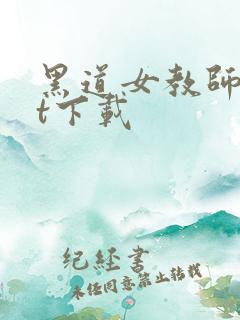 黑道女教師
t下載
纪经書
未经同意禁止转载